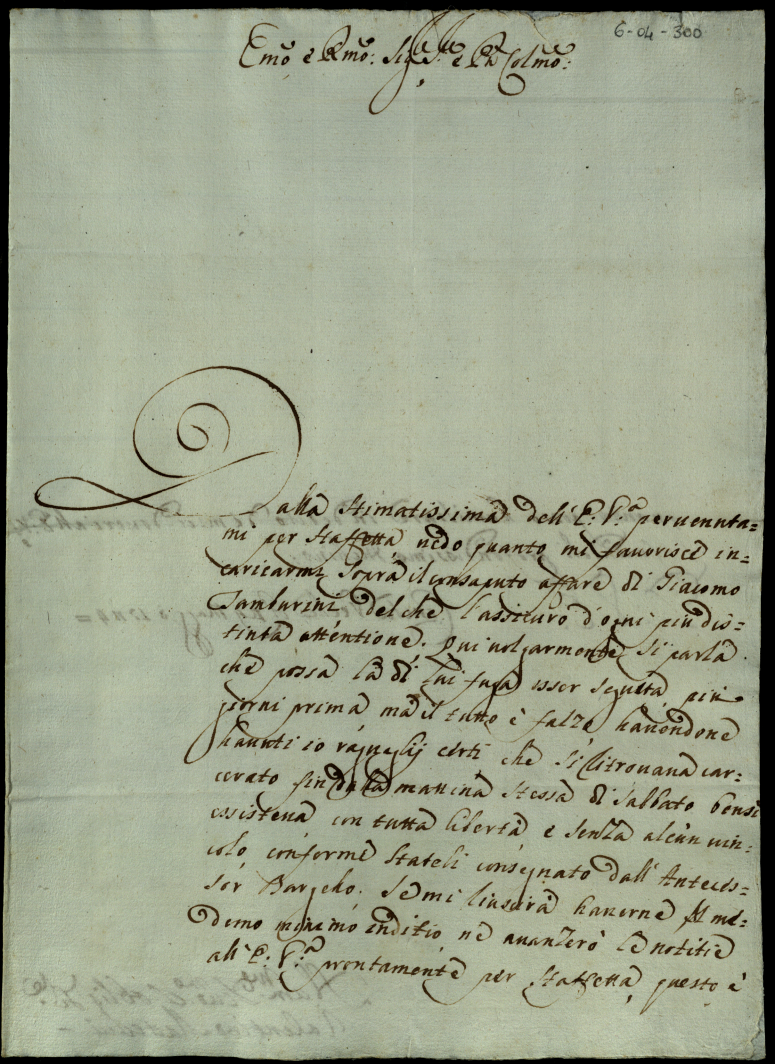 6-04-300
Emo e Rmo: Sig.re S.re e Pn Colmo:
Dalla stimatissima dell' E: V.a peruenuta=
mi per staffetta uedo quanto mi fauorisce in=
caricarmi sopra il consaputo affare di Giacomo
Tamburini del che l'assicuro d'ogni piu dis=
tinta attentione. qui uolgarmente si parla
che possa la di lui fuga esser seguita piu
giorni prima ma il tutto è falzo hauendone
hauuti io raguaglij certi che si ritrouaua car=
cerato fin dalla mattina stessa di sabbato bensi
essisteua con tutta libertà e senza alcun uin=
colo conforme stateli consegnato dall' Anteces=
sor Bargello. Se mi riuscirà hauerne me=
demo minimo inditio, ne auanzerò le notitie
all' E: V.a prontamente per staffetta, questo è